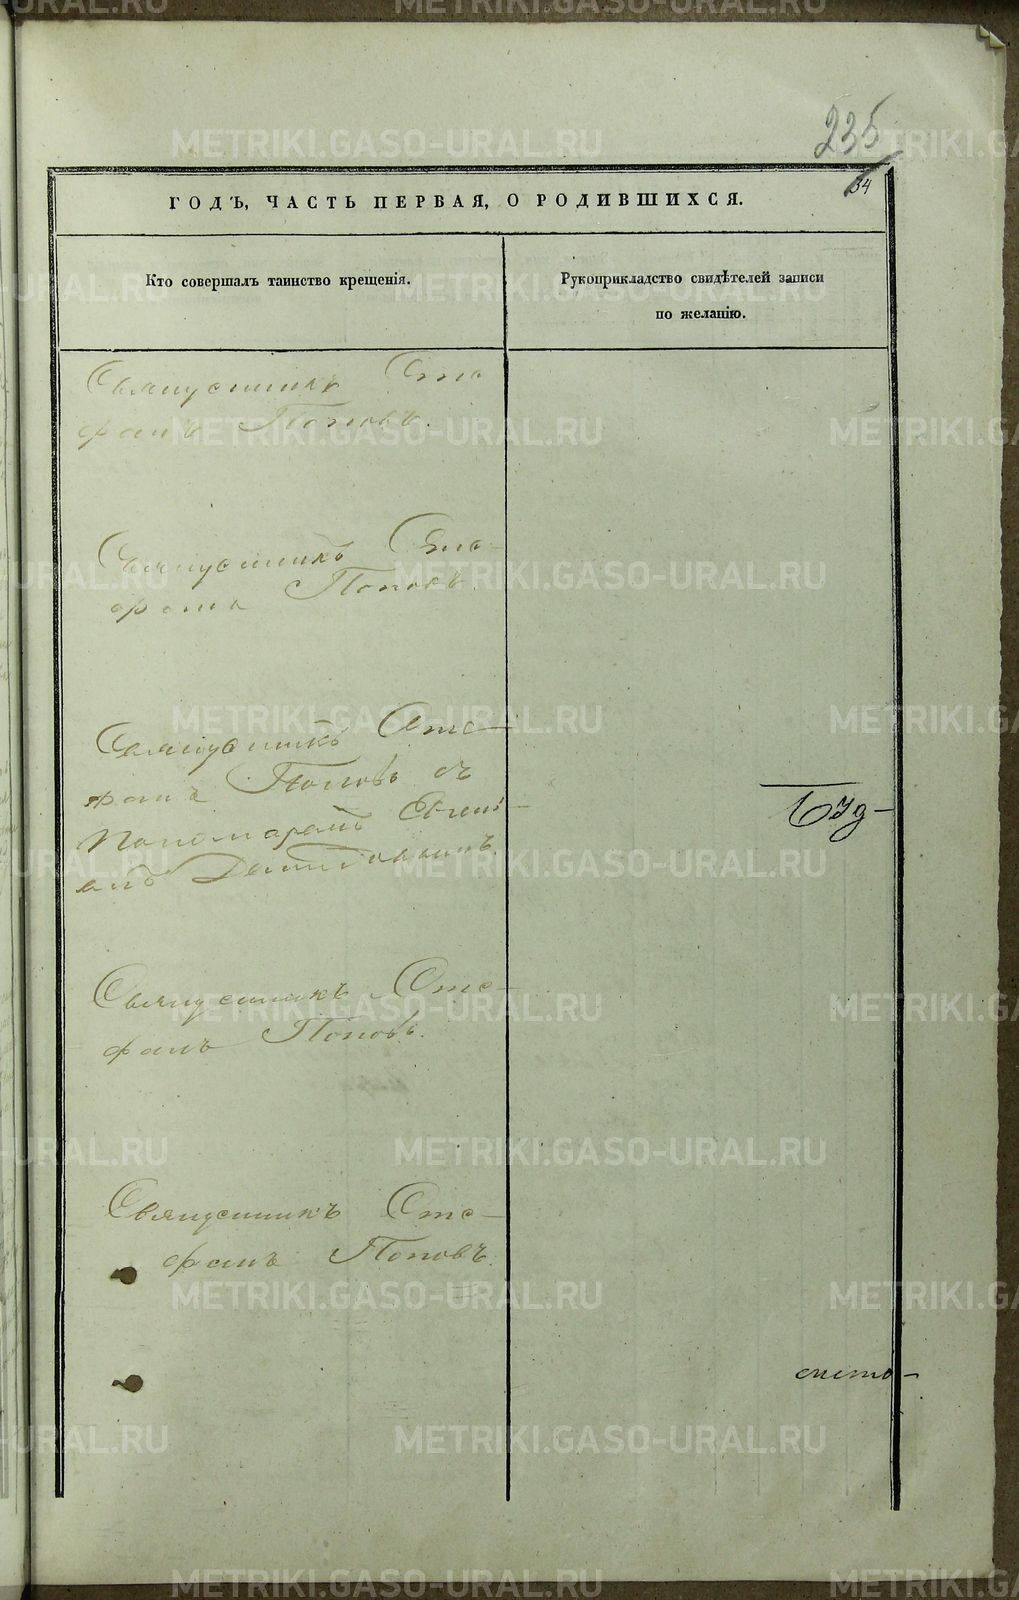 235
34
ГОДЪ, ЧАСТЬ ПЕРВАЯ, О РОДИВШИХСЯ.
Кто совершалъ таинство крещенія.
Рукоприкладство свидѣтелей записи
по желанію.
Священникъ Сте
фанъ Поповъ.
Священникъ Сте-
фанъ Поповъ
Священникъ Сте-
фанъ Поповъ съ
Пономаремъ Евгені-
емъ
Священникъ Сте-
фанъ Поповъ.
Священникъ Сте-
фанъ Поповъ.
METRIKI.GASO-URAL.RU